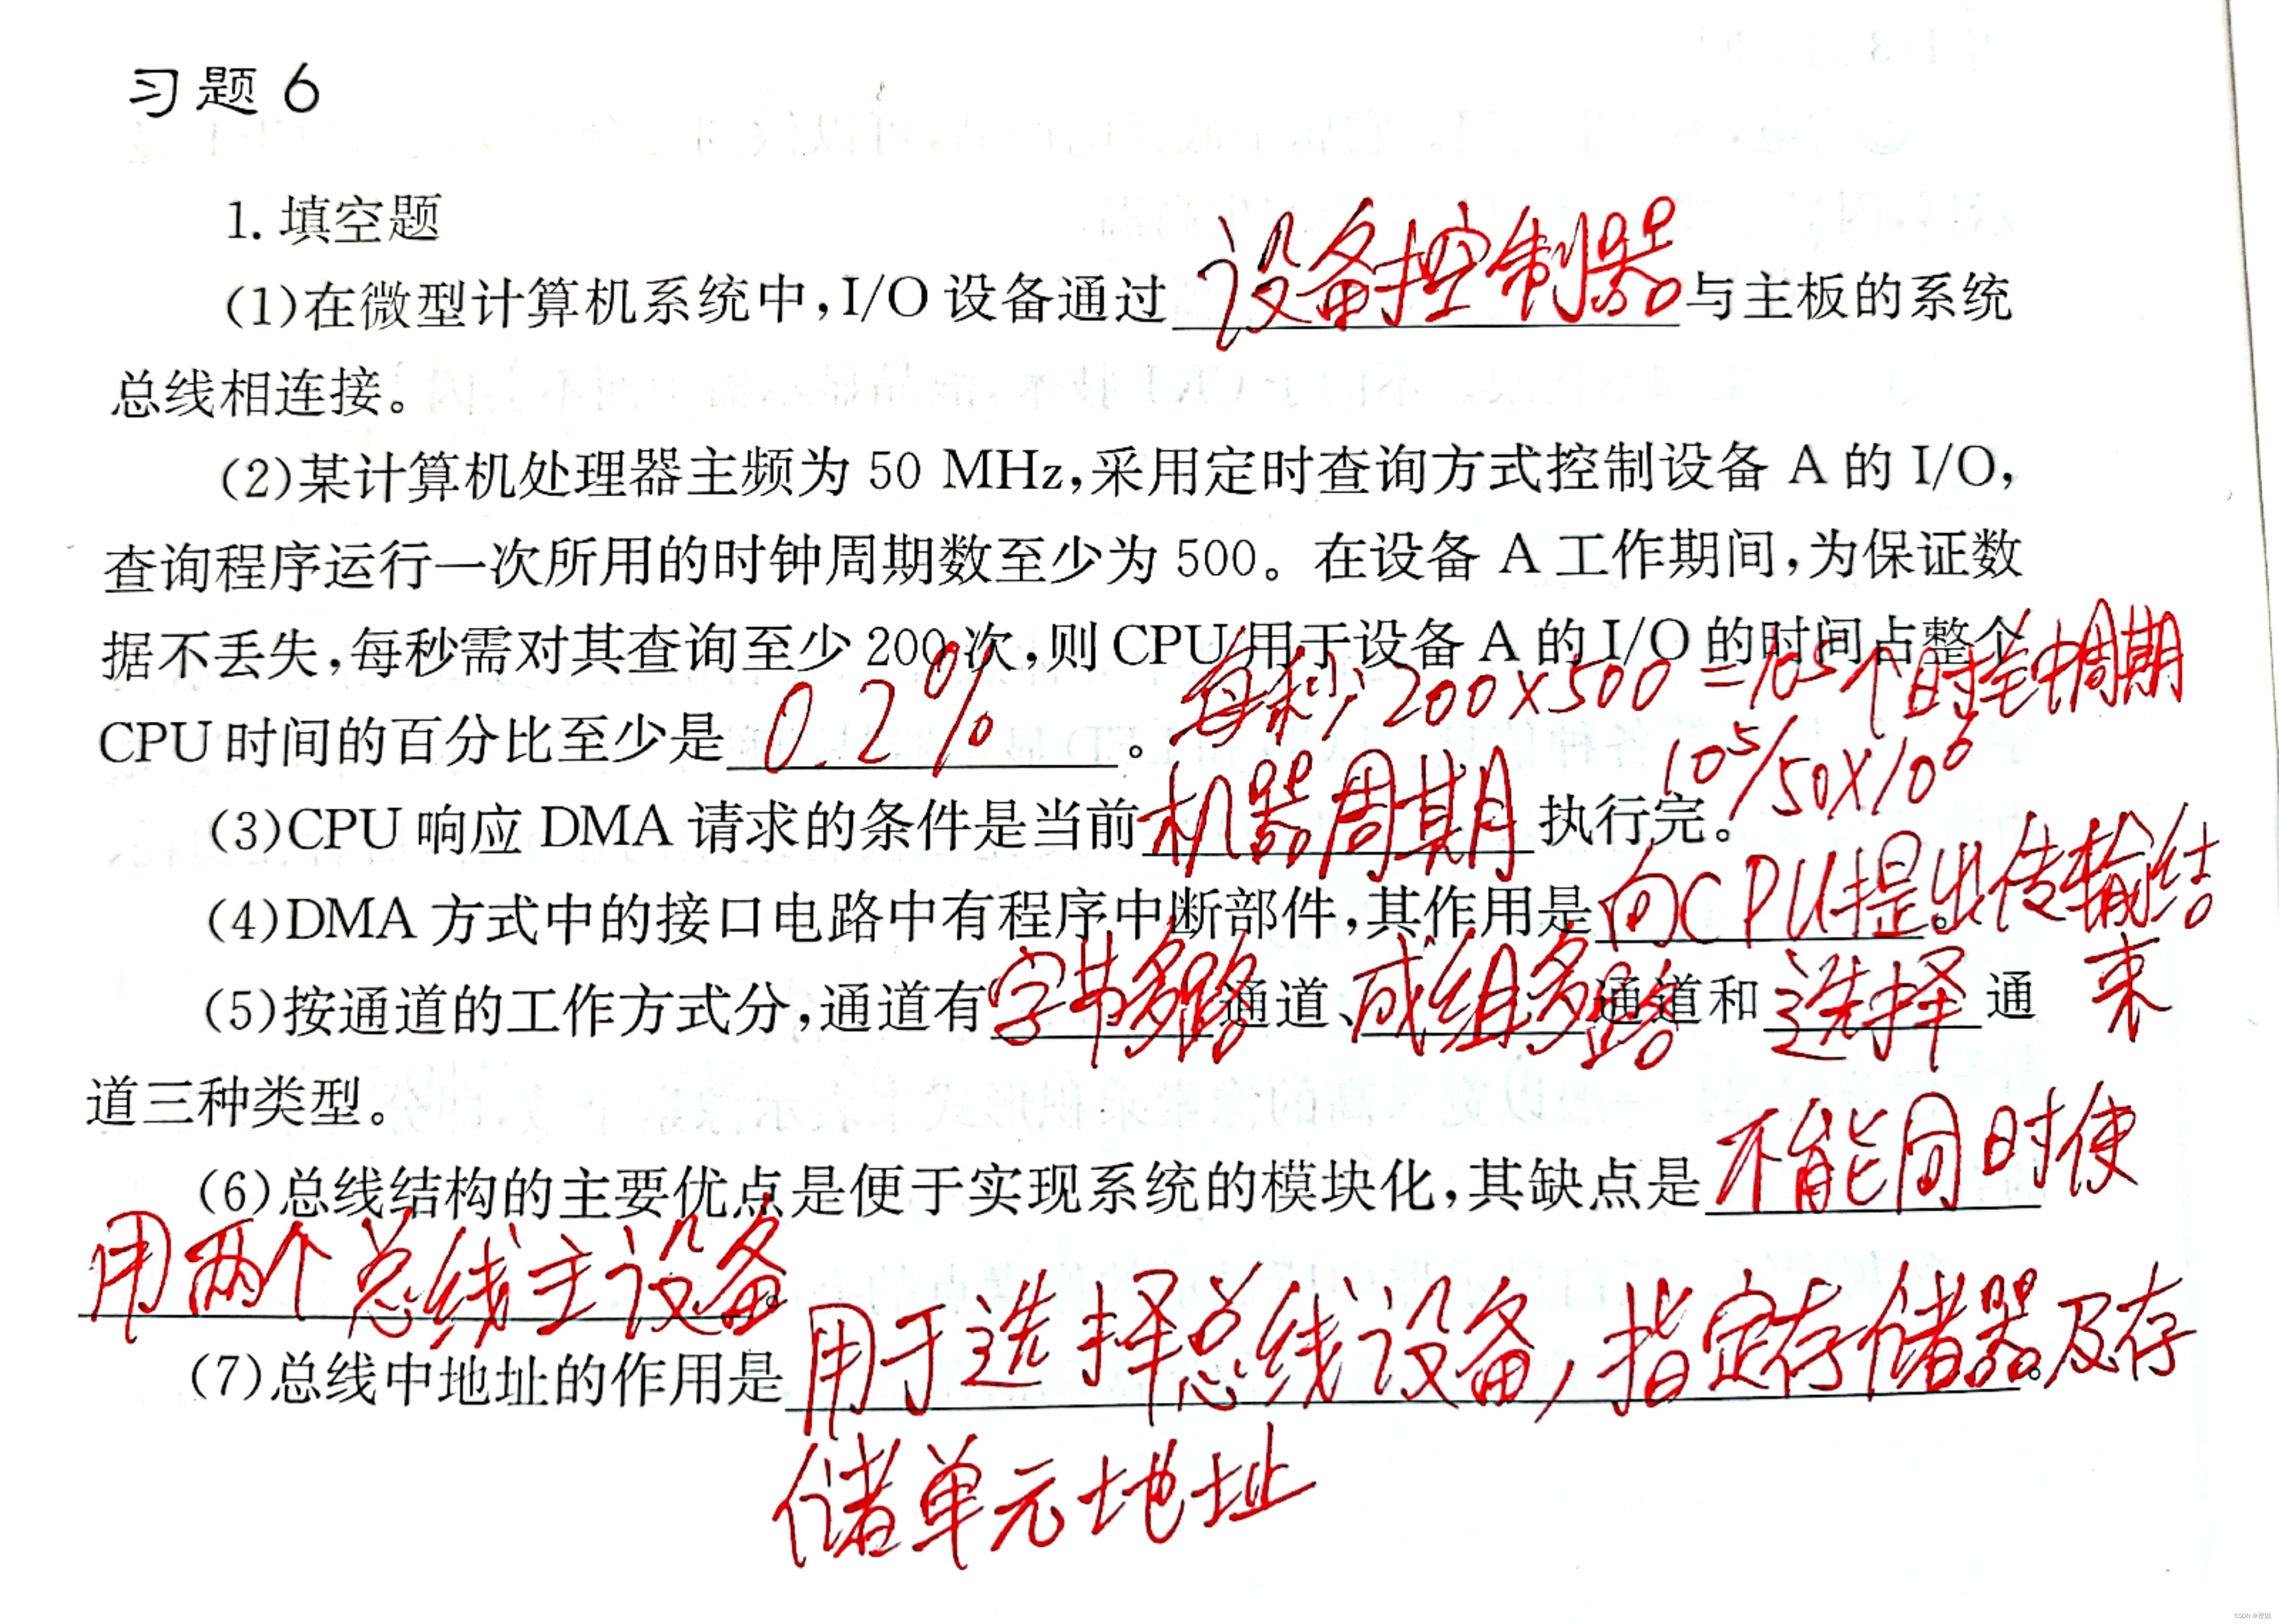 习题 6
1. 填空题
(1)在微型计算机系统中,I/O 设备通过 设备控制器 与主板的系统
总线相连接。
(2)某计算机处理器主频为 50 MHz,采用定时查询方式控制设备 A 的 I/O,
查询程序运行一次所用的时钟周期数至少为 500。在设备 A 工作期间,为保证数
据不丢失,每秒需对其查询至少 200 次,则 CPU 用于设备 A 的 I/O 的时间占整个
每秒 200×500 = 10^5个时钟周期
CPU 时间的百分比至少是 0.2% 。
10^5/50×10^6
(3)CPU 响应 DMA 请求的条件是当前 机器周期 执行完。
(4)DMA 方式中的接口电路中有程序中断部件,其作用是 向CPU提出传输结
束。
(5)按通道的工作方式分,通道有 字节多路 通道、成组多路 通道和 选择 通
道三种类型。
(6)总线结构的主要优点是便于实现系统的模块化,其缺点是 不能同时使
用两个总线主设备。
(7)总线中地址的作用是 用于选择总线设备,指定存储器及存
储单元地址。
CSDN